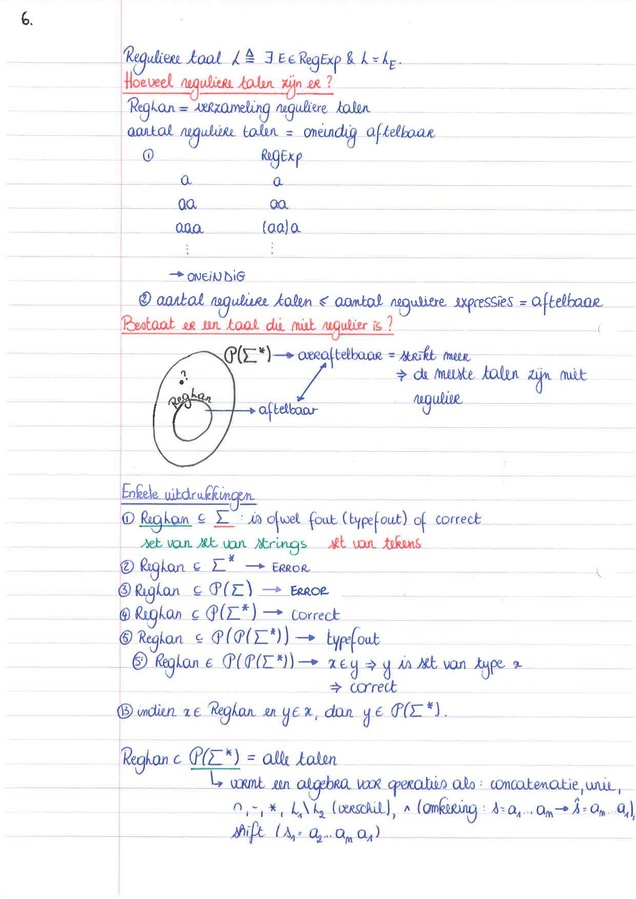 6.
Reguliere taal L ≜ ∃ E ∈ RegExp & L = L_E.
Hoeveel reguliere talen zijn er?
Reghan = verzameling reguliere talen
aantal reguliere talen = oneindig aftelbaar
① RegExp
a a
aa aa
aaa (aa)a
⋮ ⋮
→ ONEINDIG
② aantal reguliere talen ≤ aantal reguliere expressies = aftelbaar
Bestaat er een taal die niet regulier is?
P(Σ*) → overaftelbaar = strikt meer
?
⇒ de meeste talen zijn niet
Reghan
→ aftelbaar regulier
Enkele uitdrukkingen
① Reghan ⊆ Σ : is ofwel fout (typefout) of correct
set van set van strings set van tekens
② Reghan ⊆ Σ* → ERROR
③ Reghan ⊆ P(Σ) → ERROR
④ Reghan ⊆ P(Σ*) → correct
⑤ Reghan ⊆ P(P(Σ*)) → typefout
⑤' Reghan ∈ P(P(Σ*)) → x ∈ y ⇒ y is set van type x
⇒ correct
⑬ indien x ∈ Reghan en y ∈ x, dan y ∈ P(Σ*).
Reghan ⊂ P(Σ*) = alle talen
↳ vormt een algebra voor operaties als: concatenatie, unie,
∩, -, *, L₁\L₂ (verschil), ^ (omkering: s=a₁...aₘ → ŝ=aₘ...a₁),
shift (s₁= a₂...aₘ a₁)